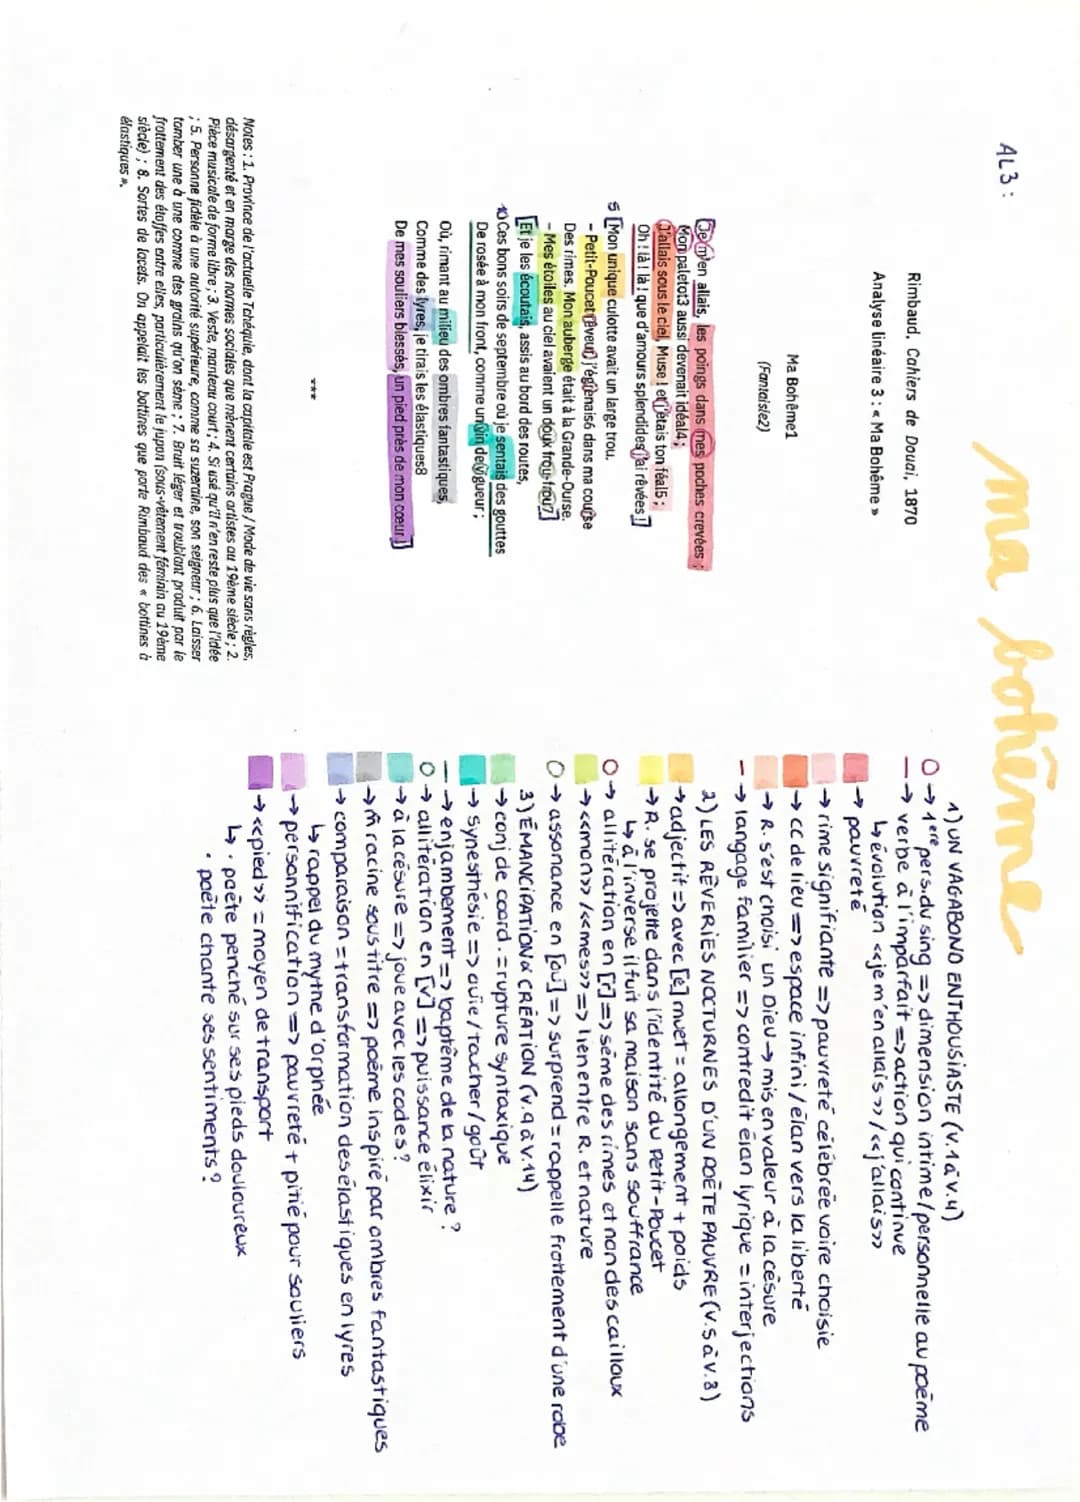 ma bohème
AL3 :
Rimbaud, Cahiers de Douai, 1870
Analyse linéaire 3 : « Ma Bohême »
Ma Bohême1
(Fantaisie2)
Je m'en allais, les poings dans mes poches crevées ;
Mon paletot3 aussi devenait idéal4 ;
J'allais sous le ciel, Muse ! et j'étais ton féal5 ;
Oh ! là ! là ! que d'amours splendides j'ai rêvées !
5 Mon unique culotte avait un large trou.
- Petit-Poucet rêveur, j'égrenais6 dans ma course
Des rimes. Mon auberge était à la Grande-Ourse.
- Mes étoiles au ciel avaient un doux frou-frou7
Et je les écoutais, assis au bord des routes,
10 Ces bons soirs de septembre où je sentais des gouttes
De rosée à mon front, comme un vin de vigueur ;
Où, rimant au milieu des ombres fantastiques,
Comme des lyres, je tirais les élastiques8
De mes souliers blessés, un pied près de mon cœur !
***
Notes : 1. Province de l'actuelle Tchéquie, dont la capitale est Prague / Mode de vie sans règles,
désargenté et en marge des normes sociales que mènent certains artistes au 19ème siècle ; 2.
Pièce musicale de forme libre ; 3. Veste, manteau court ; 4. Si usé qu'il n'en reste plus que l'idée
; 5. Personne fidèle à une autorité supérieure, comme sa suzeraine, son seigneur ; 6. Laisser
tomber une à une comme des grains qu'on sème ; 7. Bruit léger et troublant produit par le
frottement des étoffes entre elles, particulièrement le jupon (sous-vêtement féminin au 19ème
siècle) ; 8. Sortes de lacets. On appelait les bottines que porte Rimbaud des « bottines à
élastiques ».
1) UN VAGABOND ENTHOUSIASTE (v.1 à v.4)
→ 1ère pers. du sing => dimension intime/personnelle au poème
→ verbe à l'imparfait => action qui continue
↳ évolution <<je m'en allais>> / <<j'allais>>
→ pauvreté
→ rime signifiante => pauvreté célébrée voire choisie
→ cc de lieu => espace infini / élan vers la liberté
→ R. s'est choisi un Dieu → mis en valeur à la césure
→ langage familier => contredit élan lyrique = interjections
2) LES RÊVERIES NOCTURNES D'UN POÈTE PAUVRE (v.5 à v.8)
→ adjectif => avec [e] muet = allongement + poids
→ R. se projette dans l'identité du Petit-Poucet
↳ à l'inverse il fuit sa maison sans souffrance
→ allitération en [r] => sème des rimes et non des cailloux
→ <<mon>> / <<mes>> => lien entre R. et nature
→ assonance en [ou] => surprend = rappelle frottement d'une robe
3) ÉMANCIPATION & CRÉATION (v.9 à v.14)
→ conj de coord. = rupture syntaxique
→ synesthésie => ouïe / toucher / goût
→ enjambement => baptême de la nature ?
→ allitération en [v] => puissance élixir
→ à la césure => joue avec les codes ?
→ m̂ racine sous titre => poème inspiré par ombres fantastiques
→ comparaison = transformation des élastiques en lyres
↳ rappel du mythe d'orphée
→ personnification => pauvreté + pitié pour souliers
→ <<pied>> = moyen de transport
↳ • poète penché sur ses pieds douloureux
• poète chante ses sentiments ?